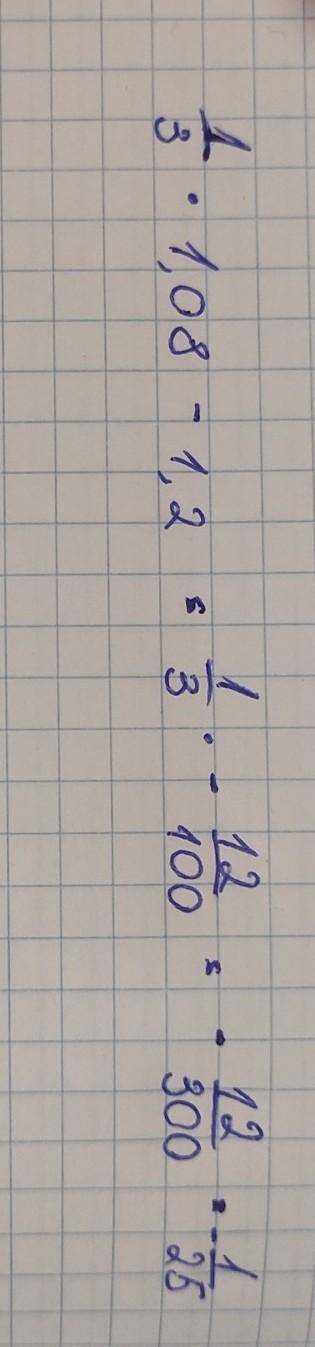 1/3 · 1,08 - 1,2 = 1/3 · - 12/100 = - 12/300 = - 1/25